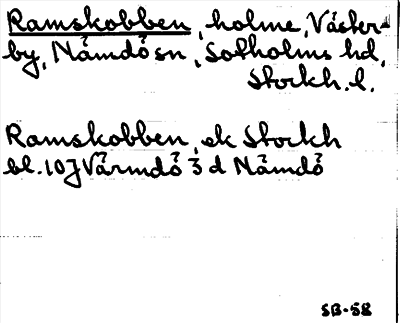 Ramskobben, holme, Väster-
by, Nämdö sn, Sotholms hd,
Stockh. l.
Ramskobben, ek Stockh
bl. 10J Värmdö 3 d Nämdö
SB-58